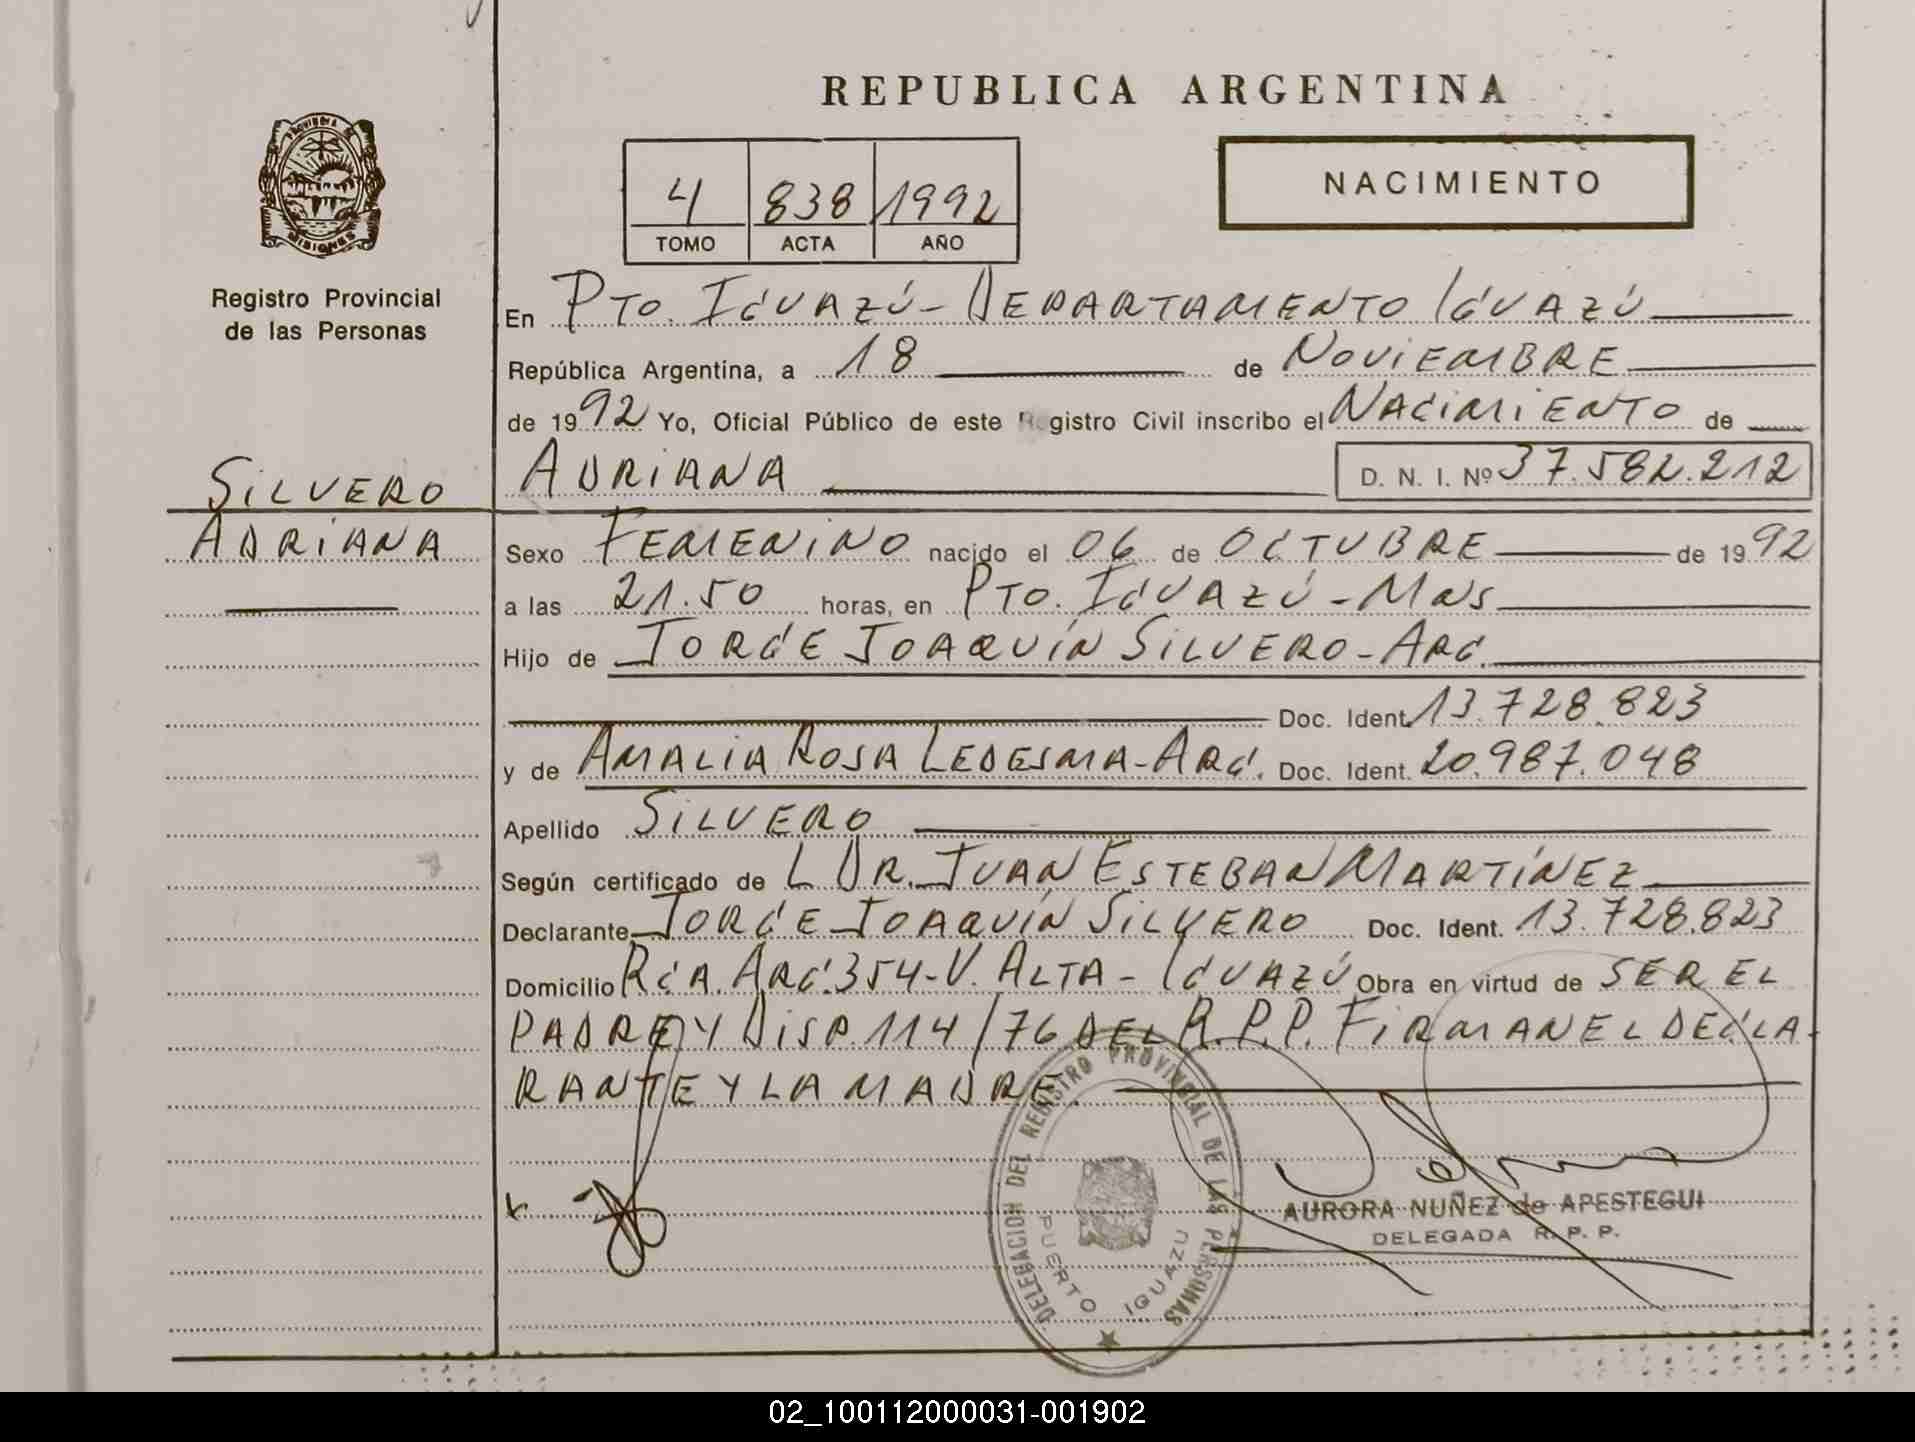 REPUBLICA ARGENTINA
PROVINCIA DE
MISIONES
Registro Provincial
de las Personas
4 838 1992
TOMO ACTA AÑO
NACIMIENTO
En PTO. IGUAZÚ - DEPARTAMENTO IGUAZÚ
República Argentina, a 18 de NOVIEMBRE
de 1992 Yo, Oficial Público de este Registro Civil inscribo el NACIMIENTO de
SILVERO
ADRIANA
ADRIANA D. N. I. Nº 37.582.212
Sexo FEMENINO nacido el 06 de OCTUBRE de 1992
a las 21.50 horas, en PTO. IGUAZÚ - MNS
Hijo de JORGE JOAQUÍN SILVERO - ARG.
Doc. Ident. 13.728.823
y de AMALIA ROSA LEDESMA - ARG. Doc. Ident. 20.987.048
Apellido SILVERO
Según certificado de L DR. JUAN ESTEBAN MARTÍNEZ
Declarante JORGE JOAQUÍN SILVERO Doc. Ident. 13.728.823
Domicilio RCA. ARG. 354 - V. ALTA - IGUAZÚ Obra en virtud de SER EL
PADRE Y DISP. 114/76 DEL R.P.P. FIRMAN EL DECLA-
RANTE Y LA MADRE.
DELEGACION DEL REGISTRO PROVINCIAL DE LAS PERSONAS
PUERTO IGUAZU
AURORA NUÑEZ de APESTEGUI
DELEGADA R. P. P.
02_100112000031-001902